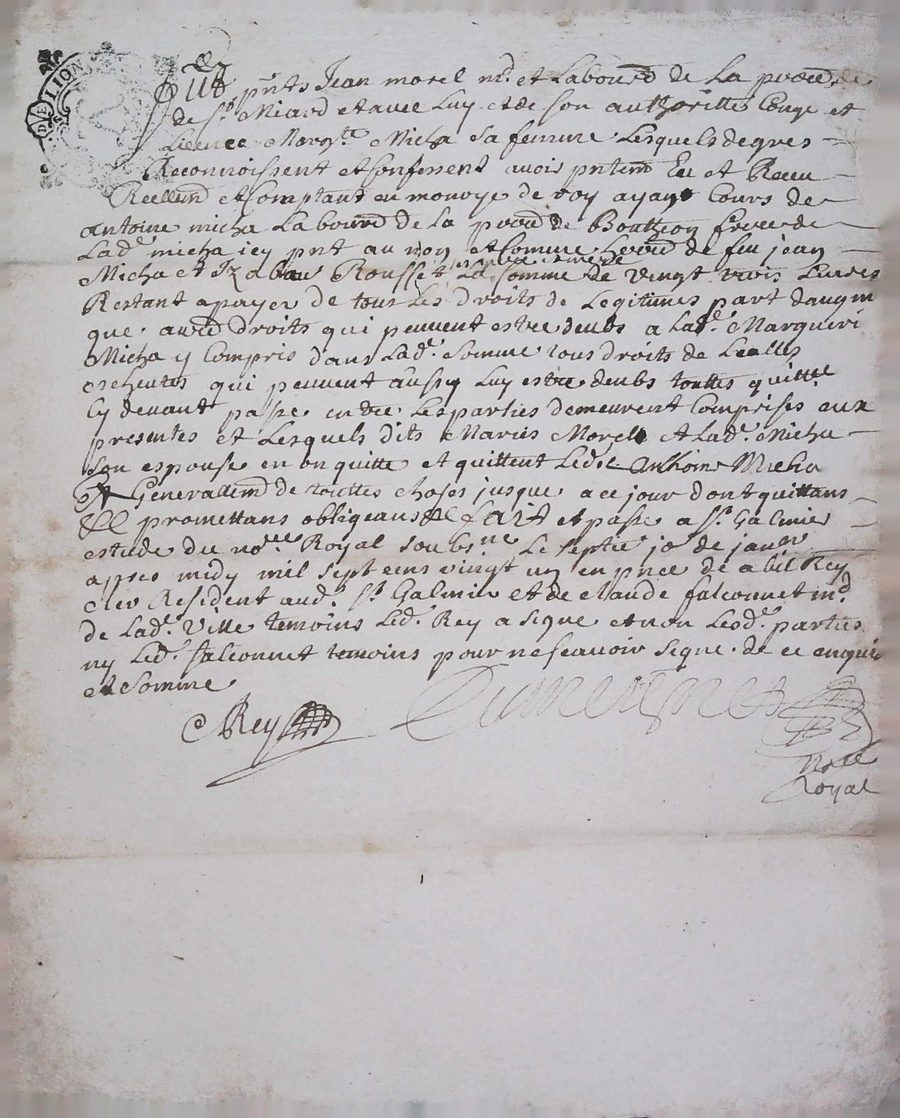 DE LION
Jean morel md. et Laboured de La
de st. Miard et avec Luy et de son authoritte Conge et
Licence Margte Micha sa femme Lesquels de gres
Reconnoissent et Confessent avoir pntemt Eu et Receu
Reellemt et Comptant en monoye de roy ayant Cours de
antoine micha Laboured de la de Bouttheon frere de
Lade micha icy pnt au nom et comme de feu jean
Micha et Izabau Rousset La somme de vingt trois Livres
Restant a payer de tous Les droits de Legitimes part daugm
que. autres droits qui peuvent estre deubs a Lade. Margueri
Micha y Compris dans Lade. somme tous droits de
escheutes qui peuvent aussy Luy estre deubs touttes quittce
Cy devant passe entre Les parties demeurent Comprises aux
presentes et Lesquels dits Maries Morel et Lade. Micha
son espouse en on quitte et quittent Ledt anthoine Micha
Et Generallemt de touttes choses jusque a ce jour dont quittans
promettans obligeans &c fait et passe a st. Galmier
estude du nore Royal soubsne Le septie jo de janer
apres midy mil sept cens vingt un en pnce de abil Rey
Resident aud. st. Galmier et de claude falconnet md.
de Lade. ville temoins Led. Rey a signe et non Lesde. parties
ny Led. falconnet temoins pour ne scavoir signe. de ce enquis
et somme
Rey
nore
Royal